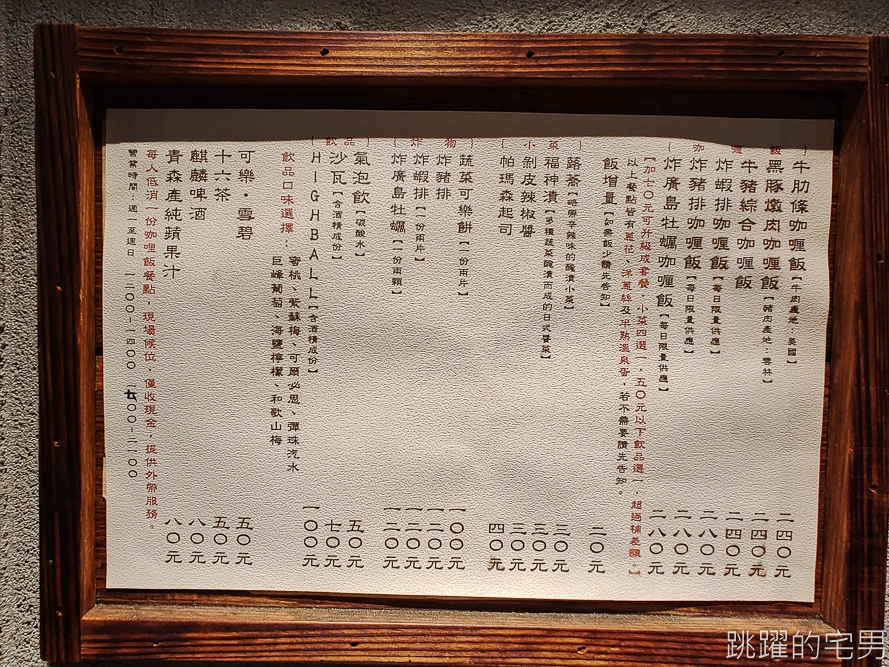 (咖喱飯)
牛肋條咖喱飯【牛肉產地：美國】 二四〇元
黑豚燉肉咖喱飯【豬肉產地：雲林】 二四〇元
牛豬綜合咖喱飯 二四〇元
炸蝦排咖喱飯【每日限量供應】 二八〇元
炸豬排咖喱飯【每日限量供應】 二八〇元
炸廣島牡蠣咖喱飯【每日限量供應】 二八〇元
【加七〇元可升級成套餐，小菜四選一，五〇元以下飲品選一，超過補差額。】
以上餐點皆有蔥花、洋蔥絲及半熟溫泉蛋，若不需要請先告知。
飯增量【如需飯少請先告知】 二〇元
(小菜)
蕗蕎【略帶辛辣味的醃漬小菜】 三〇元
福神漬【多種蔬菜醃漬而成的日式醬菜】 三〇元
剝皮辣椒醬 三〇元
帕瑪森起司 四〇元
(炸物)
蔬菜可樂餅【一份兩片】 一〇〇元
炸豬排 一二〇元
炸蝦排【一份兩片】 一二〇元
炸廣島牡蠣【一份兩顆】 一二〇元
(飲品)
氣泡飲【碳酸水】 五〇元
沙瓦【含酒精成份】 七〇元
HIGHBALL【含酒精成份】 一〇〇元
飲品口味選擇：蜜桃、紫蘇梅、可爾必思、彈珠汽水
巨峰葡萄、海鹽檸檬、和歌山梅
可樂·雪碧 五〇元
十六茶 五〇元
麒麟啤酒 八〇元
青森產純蘋果汁 八〇元
每人低消一份咖喱飯餐點，現場候位，僅收現金，提供外帶服務。
營業時間：週一至週日 一二〇〇-一四〇〇 一七〇〇-二一〇〇
跳躍的宅男